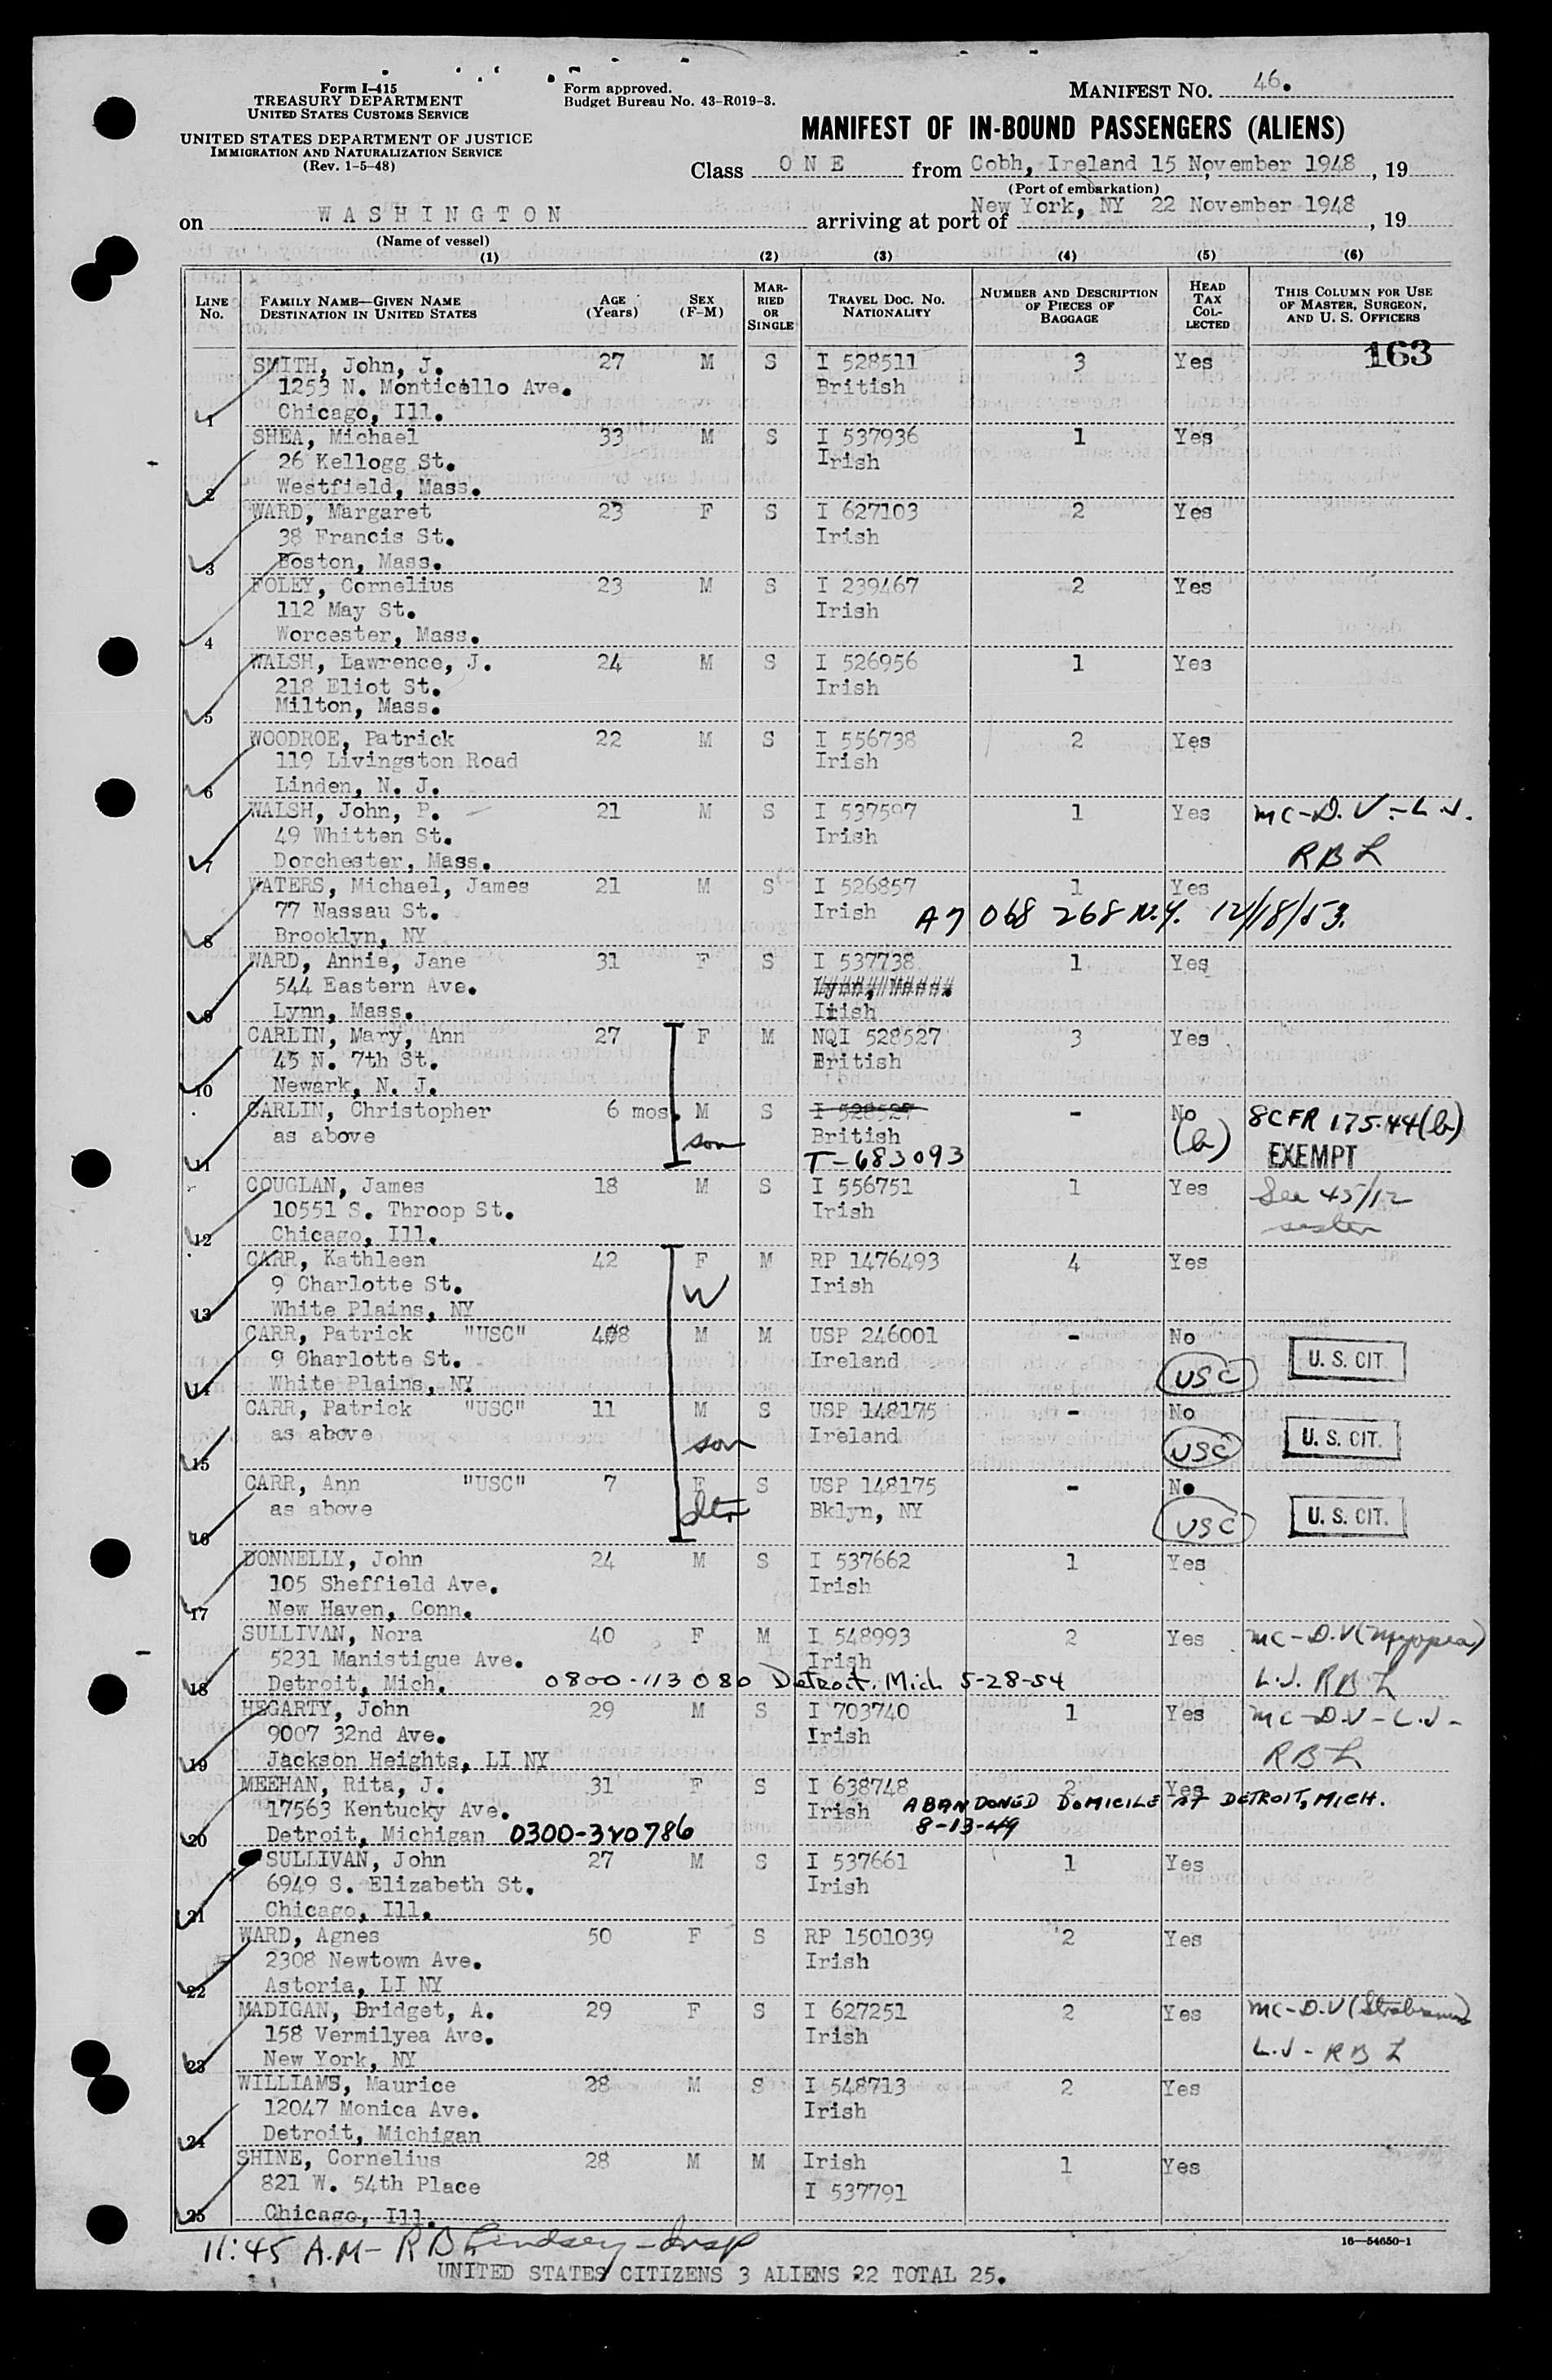 Form I-415
TREASURY DEPARTMENT
UNITED STATES CUSTOMS SERVICE
UNITED STATES DEPARTMENT OF JUSTICE
IMMIGRATION AND NATURALIZATION SERVICE
(Rev. 1-5-48)
Form approved.
Budget Bureau No. 43-R019-3.
MANIFEST NO. 46.
MANIFEST OF IN-BOUND PASSENGERS (ALIENS)
Class O N E from Cobh, Ireland 15 November 1948, 19
(Port of embarkation)
on W A S H I N G T O N arriving at port of New York, NY 22 November 1948, 19
(Name of vessel)
(1) (2) (3) (4) (5) (6)
LINE No. FAMILY NAME—GIVEN NAME DESTINATION IN UNITED STATES AGE (Years) SEX (F-M) MARRIED OR SINGLE TRAVEL DOC. NO. NATIONALITY NUMBER AND DESCRIPTION OF PIECES OF BAGGAGE HEAD TAX COLLECTED THIS COLUMN FOR USE OF MASTER, SURGEON, AND U. S. OFFICERS
163
SMITH, John, J. 27 M S I 528511 3 Yes
1253 N. Monticello Ave. British
1 Chicago, Ill.
SHEA, Michael 33 M S I 537936 1 Yes
26 Kellogg St. Irish
2 Westfield, Mass.
WARD, Margaret 23 F S I 627103 2 Yes
38 Francis St. Irish
3 Boston, Mass.
FOLEY, Cornelius 23 M S I 239467 2 Yes
112 May St. Irish
4 Worcester, Mass.
WALSH, Lawrence, J. 24 M S I 526956 1 Yes
218 Eliot St. Irish
5 Milton, Mass.
WOODROE, Patrick 22 M S I 556738 2 Yes
119 Livingston Road Irish
6 Linden, N. J.
WALSH, John, P. 21 M S I 537597 1 Yes MC-D.V.-L.J.
49 Whitten St. Irish RBL
7 Dorchester, Mass.
WATERS, Michael, James 21 M S I 526857 1 Yes
77 Nassau St. Irish A7 068 268 N.Y. 12/18/53.
8 Brooklyn, NY
WARD, Annie, Jane 31 F S I 537738 1 Yes
544 Eastern Ave. Lynn, Mass.
9 Lynn, Mass. Irish
CARLIN, Mary, Ann 27 F M NQI 528527 3 Yes
45 N. 7th St. British
10 Newark, N. J.
CARLIN, Christopher 6 mos. M S I 528527 - No 8CFR 175.44(b)
as above son British (b) EXEMPT
11 T-683093
COUGLAN, James 18 M S I 556751 1 Yes See 45/12
10551 S. Throop St. Irish sister
12 Chicago, Ill.
CARR, Kathleen 42 F M RP 1476493 4 Yes
9 Charlotte St. W Irish
13 White Plains, NY
CARR, Patrick "USC" 408 M M USP 246001 - No
9 Charlotte St. Ireland USC U. S. CIT.
14 White Plains, NY
CARR, Patrick "USC" 11 M S USP 148175 - No
as above son Ireland USC U. S. CIT.
15
CARR, Ann "USC" 7 F S USP 148175 - No
as above dtr Bklyn, NY USC U. S. CIT.
16
DONNELLY, John 24 M S I 537662 1 Yes
105 Sheffield Ave. Irish
17 New Haven, Conn.
SULLIVAN, Nora 40 F M I 548993 2 Yes MC-D.V (Myopia)
5231 Manistigue Ave. Irish
18 Detroit, Mich. 0800-113080 Detroit, Mich 5-28-54 L.J. RBL
HEGARTY, John 29 M S I 703740 1 Yes MC-D.V-L.J-
9007 32nd Ave. Irish RBL
19 Jackson Heights, LI NY
MEEHAN, Rita, J. 31 F S I 638748 2 Yes
17563 Kentucky Ave. Irish ABANDONED DOMICILE AT DETROIT, MICH.
20 Detroit, Michigan 0300-320786 8-13-49
SULLIVAN, John 27 M S I 537661 1 Yes
6949 S. Elizabeth St. Irish
21 Chicago, Ill.
WARD, Agnes 50 F S RP 1501039 2 Yes
2308 Newtown Ave. Irish
22 Astoria, LI NY
MADIGAN, Bridget, A. 29 F S I 627251 2 Yes MC-D.V
158 Vermilyea Ave. Irish L.J-RBL
23 New York, NY
WILLIAMS, Maurice 28 M S I 548713 2 Yes
12047 Monica Ave. Irish
24 Detroit, Michigan
SHINE, Cornelius 28 M M Irish 1 Yes
821 W. 54th Place I 537791
25 Chicago, Ill.
11:45 A.M- RB Lindsey-Insp
16-54650-1
UNITED STATES CITIZENS 3 ALIENS 22 TOTAL 25.